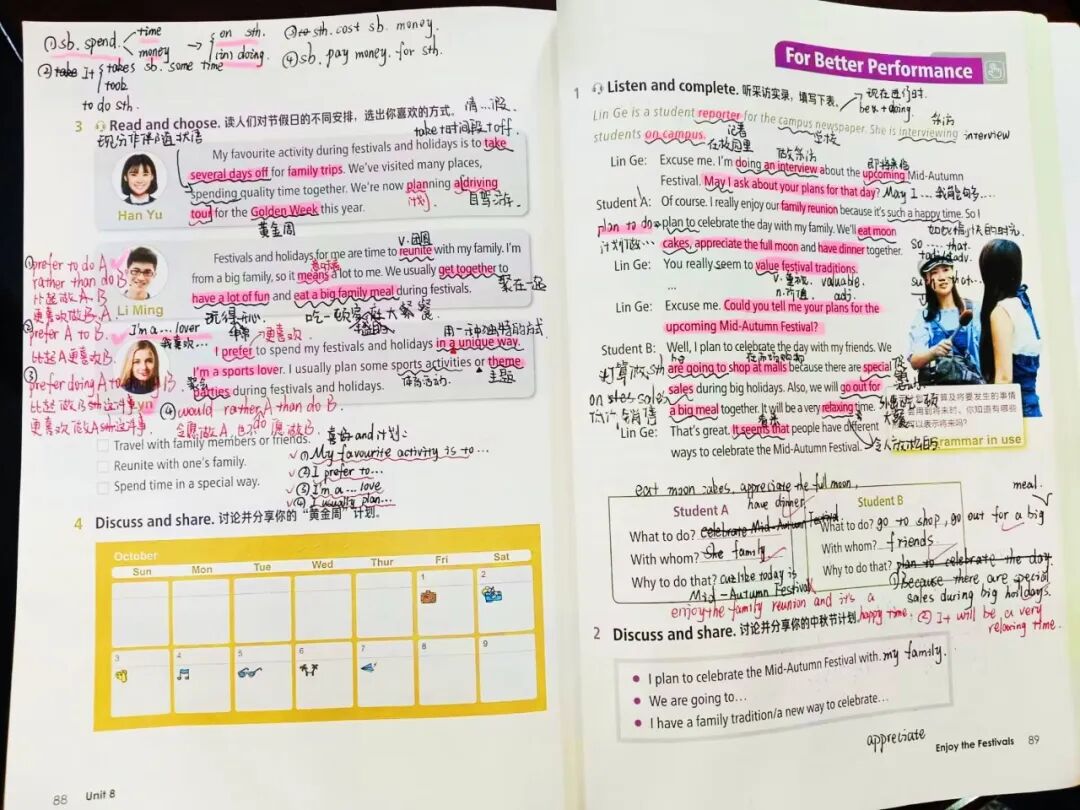 ①sb. spend. time money → on sth. (in) doing.
③sth. cost sb. money.
④sb. pay money. for sth.
② It takes took sb. some time
to do sth.
3 Read and choose. 读人们对节假日的不同安排，选出你喜欢的方式。
请…假
take 时间段 + off.
现在分词作伴随状语
My favourite activity during festivals and holidays is to take
several days off for family trips. We've visited many places,
spending quality time together. We're now planning a driving
tour for the Golden Week this year.
计划
自驾游
黄金周
Han Yu
v.团圆
Festivals and holidays for me are time to reunite with my family. I'm
from a big family, so it means a lot to me. We usually get together to
have a lot of fun and eat a big family meal during festivals.
聚在一起
玩得开心
Li Ming
①prefer to do A
rather than do B
比起做A.B
更喜欢做B.A
②prefer A to B.
比起A更喜欢B.
③prefer doing A to doing B
I'm a... lover
我喜欢…
更喜欢
用一种独特的方式
I prefer to spend my festivals and holidays in a unique way.
I'm a sports lover. I usually plan some sports activities or theme
parties during festivals and holidays.
聚会
体育活动
主题
④would rather A than do B.
Travel with family members or friends.
Reunite with one's family.
Spend time in a special way.
喜好 and 计划:
①My favourite activity is to...
②I prefer to...
③I'm a... love
④I usually plan...
4 Discuss and share. 讨论并分享你的“黄金周”计划。
October
Sun Mon Tue Wed Thur Fri Sat
1 2
3 4 5 6 7 8 9
88 Unit 8
For Better Performance
1 Listen and complete. 听采访实录，填写下表。
现在进行时.
be + doing
Lin Ge is a student reporter for the campus newspaper. She is interviewing
students on campus.
记者
学校
采访
interview
在校园里
做采访
即将来临
Lin Ge: Excuse me. I'm doing an interview about the upcoming Mid-Autumn
Festival. May I ask about your plans for that day?
May I... 我能够…
Student A: Of course. I really enjoy our family reunion because it's such a happy time. So I
plan to celebrate the day with my family. We'll eat moon
cakes, appreciate the full moon and have dinner together.
plan to do
计划做…
so... that
adj/adv.
Lin Ge: You really seem to value festival traditions.
v.重视. valuable.
n.价值. adj.
...
Lin Ge: Excuse me. Could you tell me your plans for the
upcoming Mid-Autumn Festival?
Student B: Well, I plan to celebrate the day with my friends. We
are going to shop at malls because there are special
sales during big holidays. Also, we will go out for
a big meal together. It will be a very relaxing time.
打算做sth
在商场购物
on sales
大餐
看来
Lin Ge: That's great. It seems that people have different
ways to celebrate the Mid-Autumn Festival.
令人放松的
算及将要发生的事情
用到将来时。你知道有哪些
可以表示将来吗？
Grammar in use
eat moon cakes, appreciate the full moon,
have dinner
meal.
Student A
What to do? celebrate Mid-Autumn Festival
With whom? She family
Why to do that? today is
Mid-Autumn Festival
enjoy the family reunion and it's a
happy time.
Student B
What to do? go to shop, go out for a big
With whom? friends
Why to do that? plan to celebrate the day.
①Because there are special
sales during big holidays.
②It will be a very
relaxing time.
2 Discuss and share. 讨论并分享你的中秋节计划。
I plan to celebrate the Mid-Autumn Festival with my family.
We are going to...
I have a family tradition/a new way to celebrate...
appreciate
Enjoy the Festivals 89